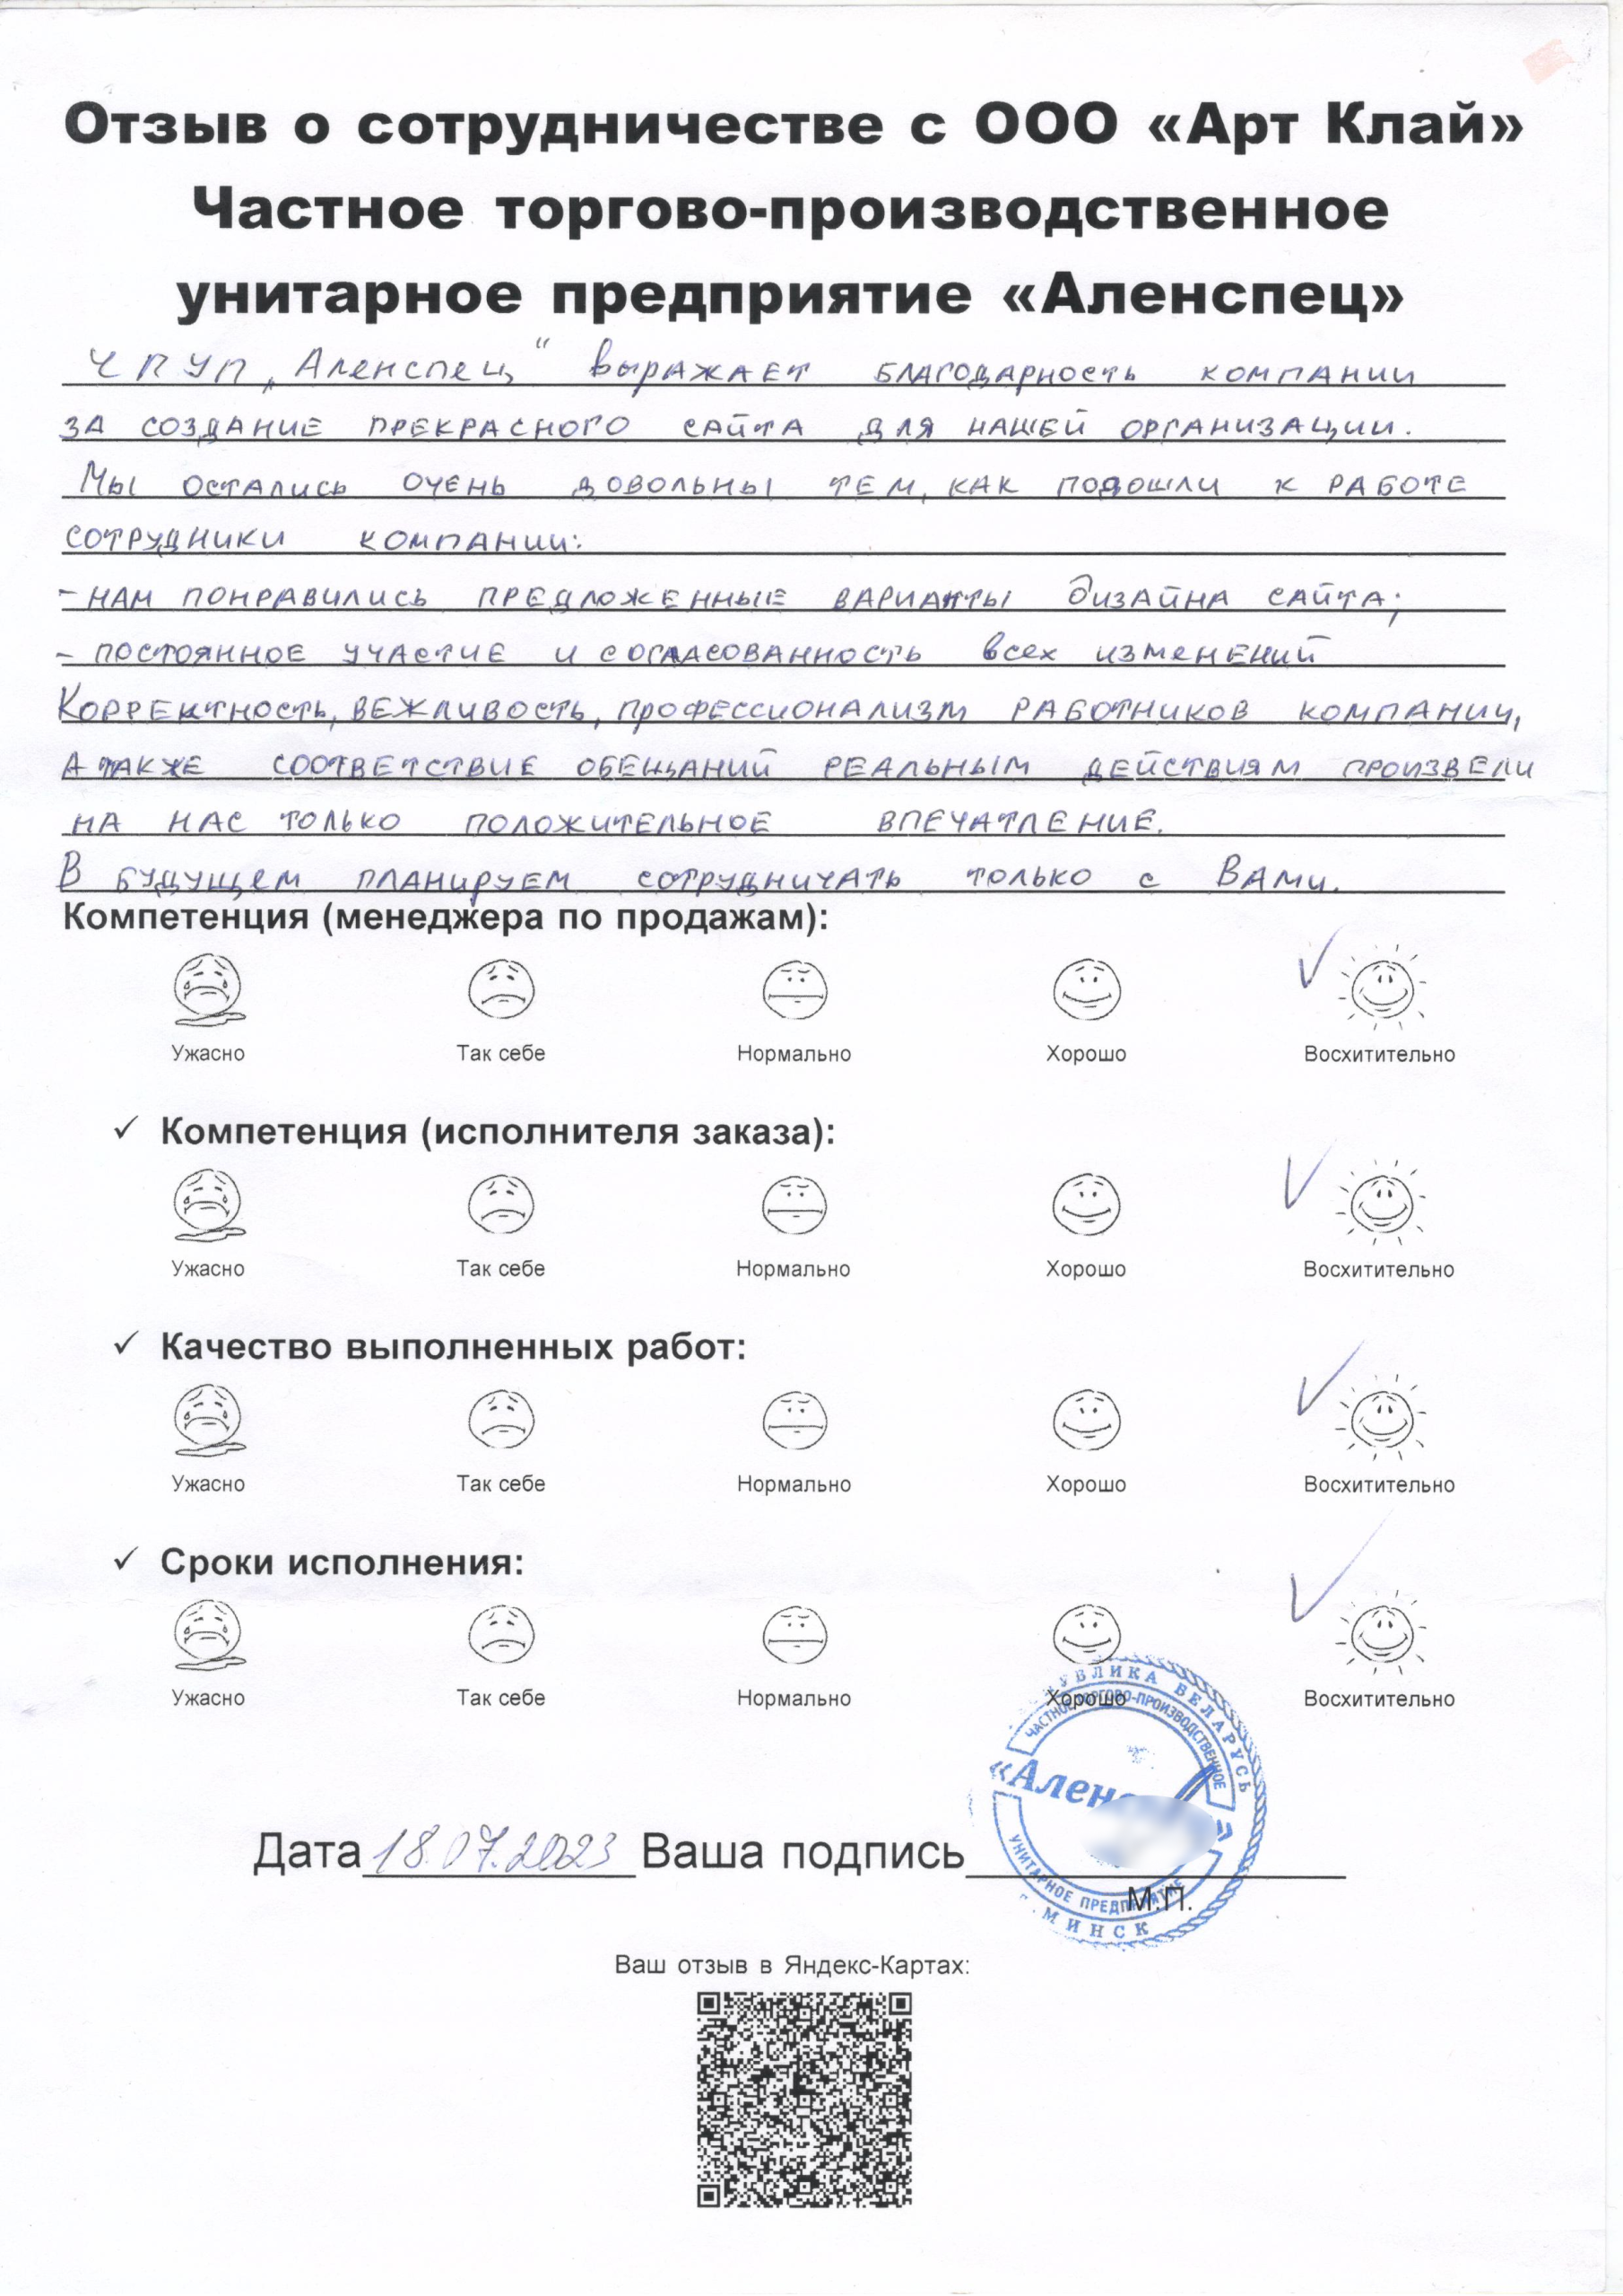 Отзыв о сотрудничестве с ООО «Арт Клай»
Частное торгово-производственное
унитарное предприятие «Аленспец»
ЧПУП „Аленспец“ выражает благодарность компании
за создание прекрасного сайта для нашей организации.
Мы остались очень довольны тем, как подошли к работе
сотрудники компании:
- нам понравились предложенные варианты дизайна сайта;
- постоянное участие и согласованность всех изменений
Корректность, вежливость, профессионализм работников компании,
а также соответствие обещаний реальным действиям произвели
на нас только положительное впечатление.
В будущем планируем сотрудничать только с Вами.
Компетенция (менеджера по продажам):
Ужасно Так себе Нормально Хорошо Восхитительно
✓ Компетенция (исполнителя заказа):
Ужасно Так себе Нормально Хорошо Восхитительно
✓ Качество выполненных работ:
Ужасно Так себе Нормально Хорошо Восхитительно
✓ Сроки исполнения:
Ужасно Так себе Нормально Хорошо Восхитительно
БЕЛАРУСЬ
ЧАСТНОЕ ТОРГОВО-ПРОИЗВОДСТВЕННОЕ
Дата 18.07.2023 Ваша подпись
УНИТАРНОЕ ПРЕДПРИЯТИЕ
М.П.
Г. МИНСК
Ваш отзыв в Яндекс-Картах: